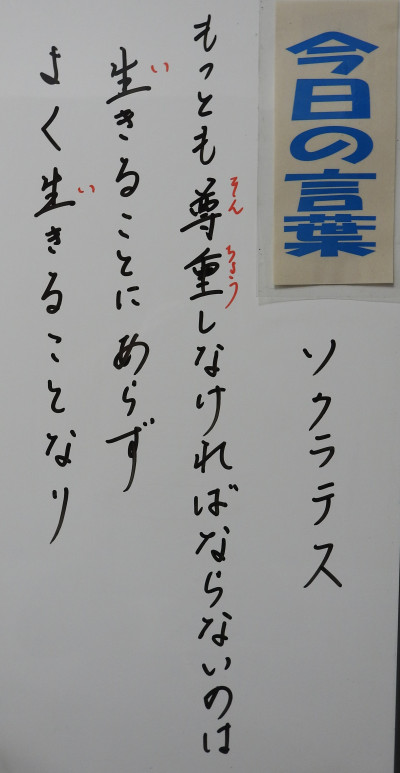 今日の言葉
ソクラテス
もっとも尊重しなければならないのは
生きることにあらず
よく生きることなり